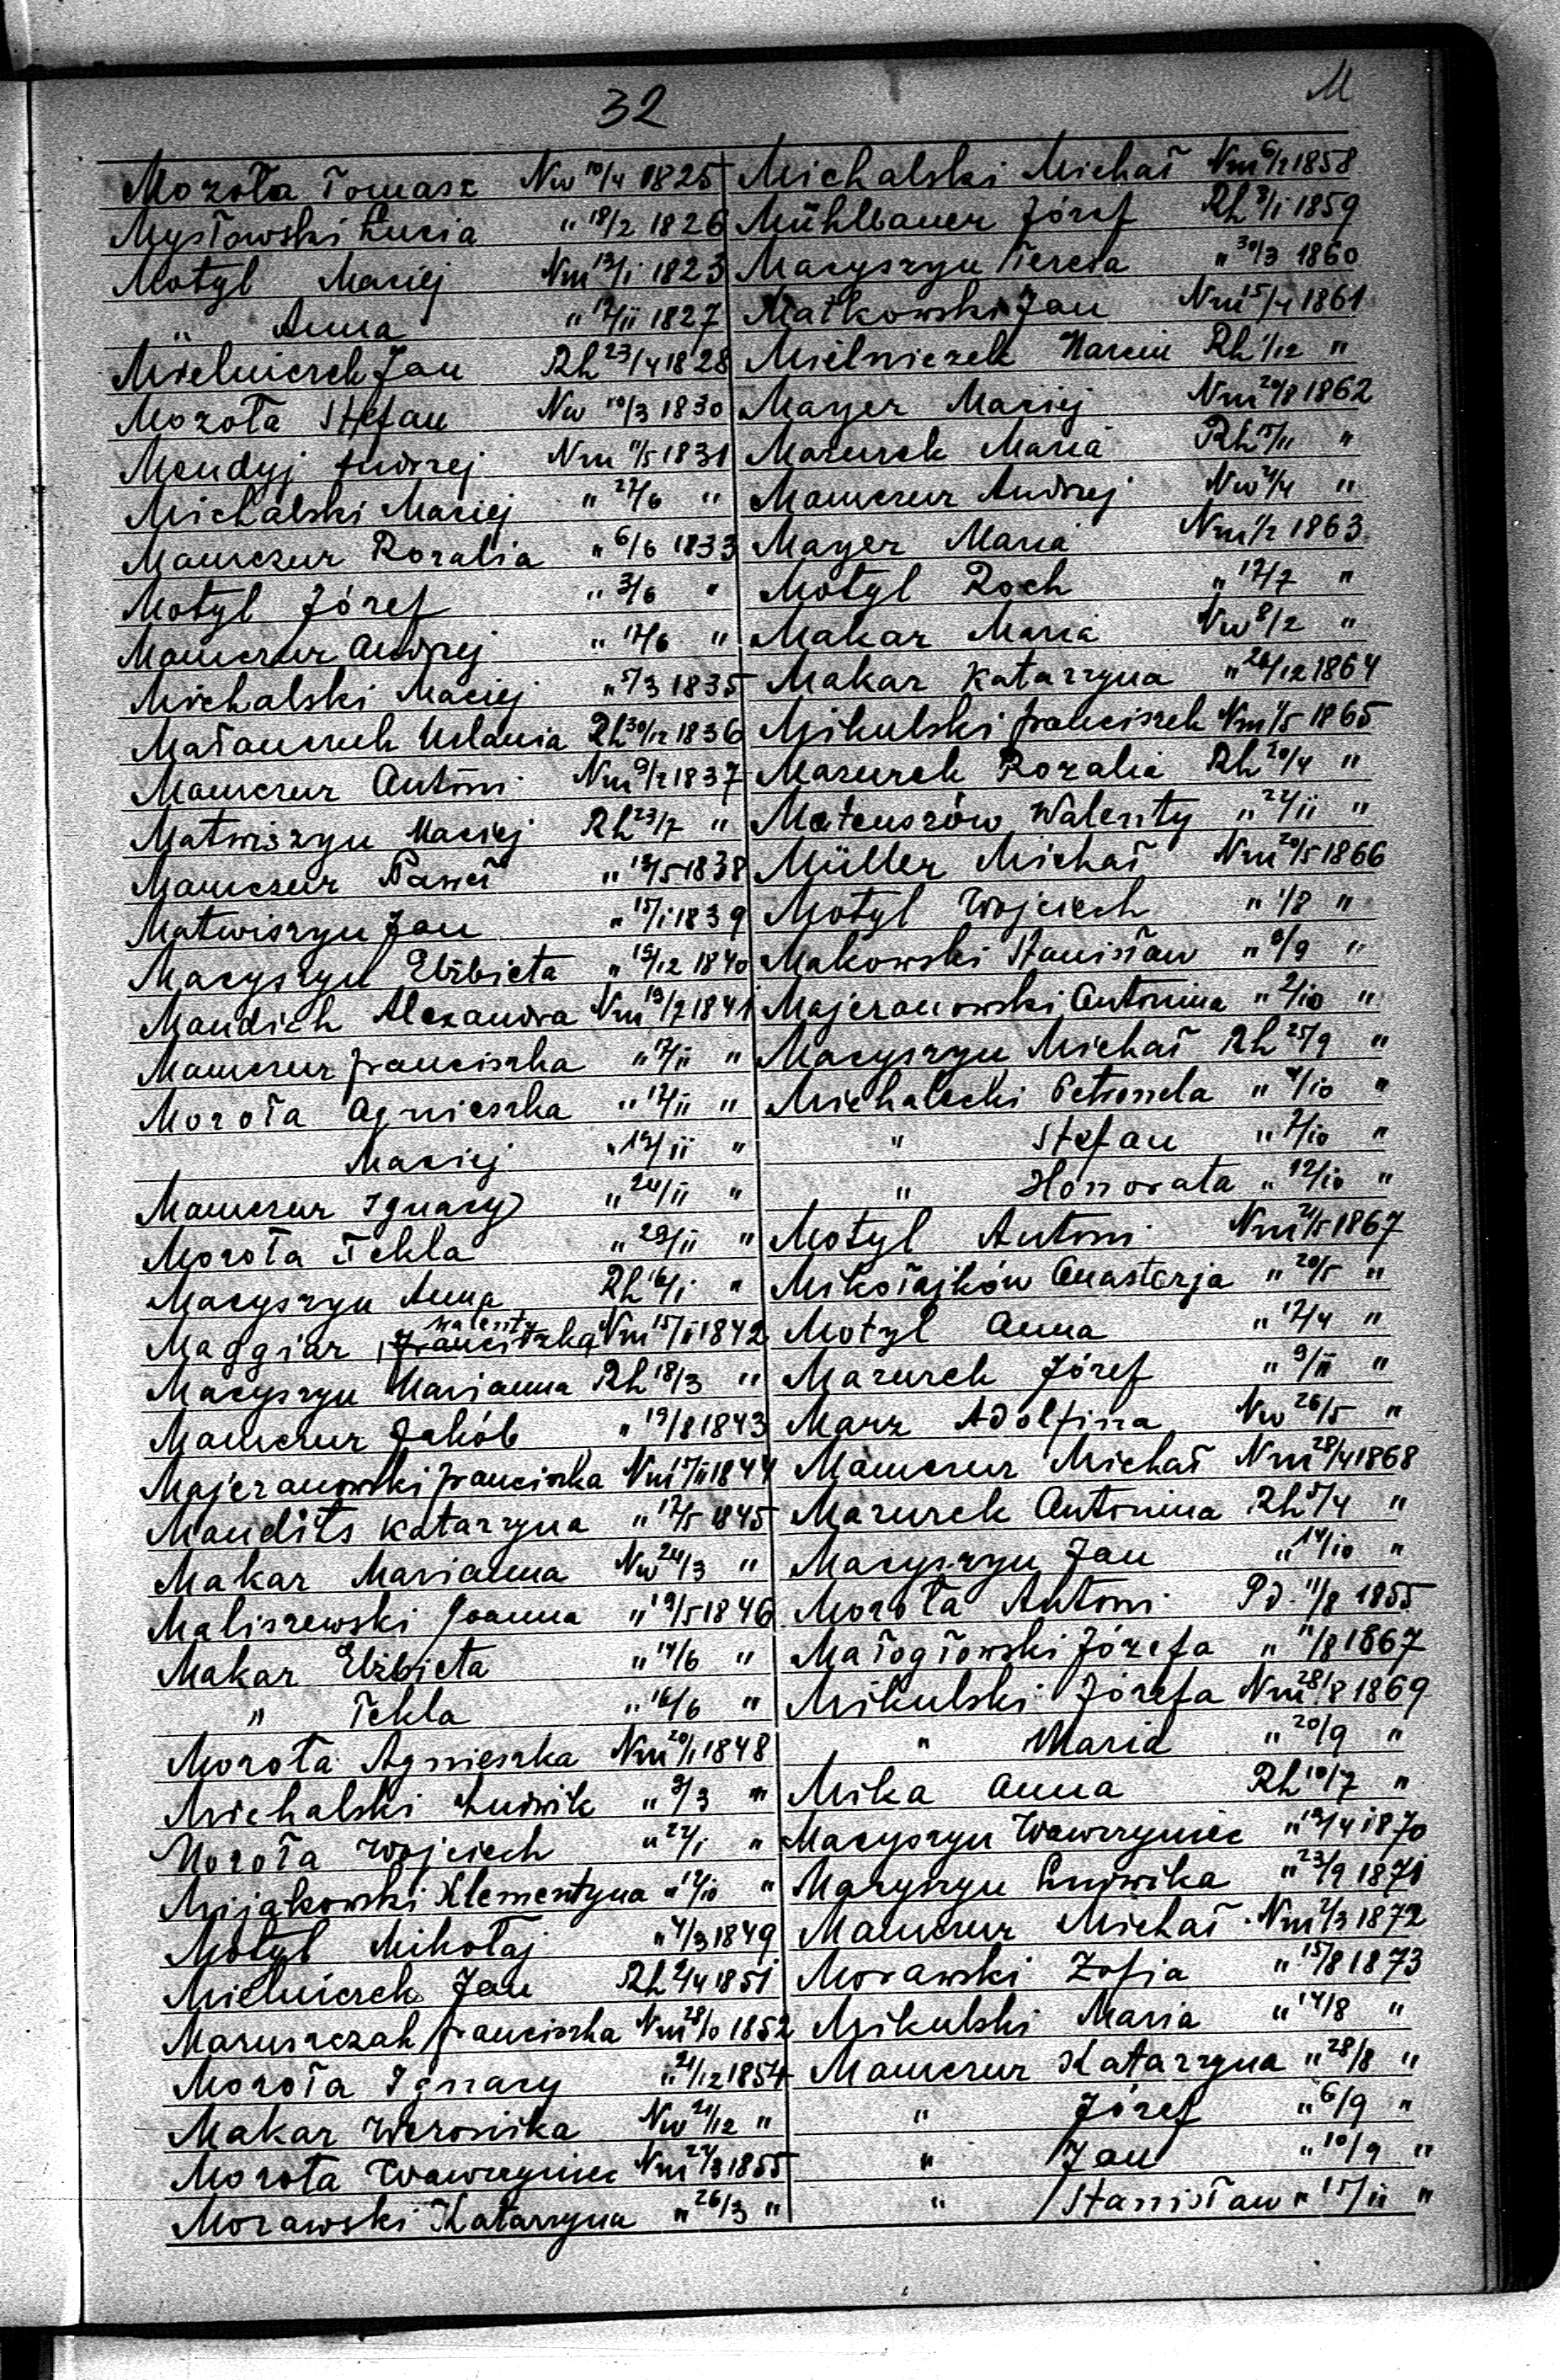 32
M
Mozoła Tomasz Nw 10/4 1825
Mysłowski Łucia " 18/2 1826
Motyl Maciej Nm 13/1 1823
" Anna " 12/II 1827
Mielniczek Jan Rh 23/4 1828
Mozoła Stefan Nw 10/3 1830
Mendyj Andrzej Nm 11/5 1831
Michalski Maciej " 22/6 "
Mamczur Rozalia " 6/6 1833
Motyl Józef " 3/6 "
Mamczur Andrzej " 12/6 "
Michalski Maciej " 5/3 1835
Małanczuk Melania Rh 30/12 1836
Mamczur Antoni Nm 9/2 1837
Matwiszyn Maciej Rh 23/7 "
Mamczur Paweł " 12/5 1838
Matwiszyn Jan " 15/1 1839
Macyszyn Elżbieta " 15/12 1840
Mandich Alexandra Nm 19/7 1841
Mamczur Franciszka " 12/II "
Mozoła Agnieszka " 12/II "
Maciej " 19/II "
Mamczur Ignacy " 24/II "
Mozoła Tekla " 29/II "
Macyszyn Anna Rh 16/1 "
Maggiar Franciszka Walenty Nm 15/II 1842
Macyszyn Marianna Rh 18/3 "
Mamczur Jakób " 19/8 1843
Majeranowski Franciszka Nm 17/II 1844
Mandits Katarzyna " 12/5 1845
Makar Marianna Nw 24/3 "
Maliszewski Joanna " 19/5 1846
Makar Elżbieta " 14/6 "
" Tekla " 16/6 "
Mozoła Agnieszka Nm 20/1 1848
Michalski Ludwik " 3/3 "
Mozoła Wojciech " 22/1 "
Mijakowski Klementyna " 12/10 "
Motyl Mikołaj " 4/3 1849
Mielniczek Jan Rh 2/4 1851
Maruszczak Franciszka Nm 28/10 1852
Mozoła Ignacy " 21/12 1854
Makar Weronika Nw 21/12 "
Mozoła Wawrzyniec Nm 22/3 1855
Morawski Katarzyna " 26/3 "
Michalski Michał Nm 6/2 1858
Mühlbauer Józef Rh 8/1 1859
Macyszyn Teresa " 30/3 1860
Małkowski Jan Nm 15/4 1861
Mielniczek Marcin Rh 1/12 "
Mayer Maciej Nm 20/8 1862
Mazurek Maria Rh 15/II "
Mamczur Andrzej Nw 2/4 "
Mayer Maria Nm 1/2 1863
Motyl Roch " 12/7 "
Makar Maria Nw 8/2 "
Makar Katarzyna " 26/12 1864
Mikulski Franciszek Nm 1/5 1865
Mazurek Rozalia Rh 20/4 "
Mateuszów Walenty " 22/II "
Müller Michał Nm 20/5 1866
Motyl Wojciech " 1/8 "
Makowski Stanisław " 8/9 "
Majeranowski Antonina " 2/10 "
Macyszyn Michał Rh 25/9 "
Michalecki Petronela " 4/10 "
" Stefan " 7/10 "
" Honorata " 12/10 "
Motyl Antoni Nm 21/5 1867
Mikołajków Anastazja " 20/5 "
Motyl Anna " 12/4 "
Mazurek Józef " 9/II "
Marz Adolfina Nw 26/5 "
Mamczur Michał Nm 28/4 1868
Mazurek Antonina Rh 5/4 "
Macyszyn Jan " 14/10 "
Mozoła Antoni Pd. 11/8 1855
Małogłowski Józefa " 11/8 1867
Mikulski Józefa Nm 28/8 1869
" Maria " 20/9 "
Mika Anna Rh 10/7 "
Macyszyn Wawrzyniec " 19/4 1870
Macyszyn Ludwika " 23/9 1871
Mamczur Michał Nm 2/3 1872
Morawski Zofia " 15/8 1873
Mikulski Maria " 14/8 "
Mamczur Katarzyna " 28/8 "
" Józef " 6/9 "
" Jan " 10/9 "
" Stanisław " 15/II "